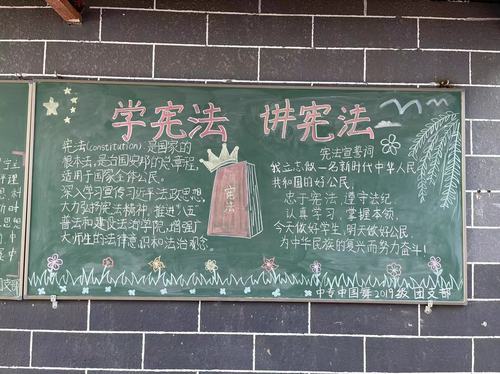 学宪法 讲宪法
宪法(constitution)是国家的
根本法,是治国安邦的总章程,
适用于国家全体公民。
深入学习宣传习近平法政思想,
大力弘扬宪法精神,推进"八五"
普法和建设法治学院,增强广
大师生的法律意识和法治观念。
宪法
宪法宣誓词
我立志做一名新时代中华人民
共和国的好公民。
忠于宪法,遵守法纪
认真学习,掌握本领,
今天做好学生,明天做好公民
为中华民族的复兴而努力奋斗!
中专中国舞2019级 团支部